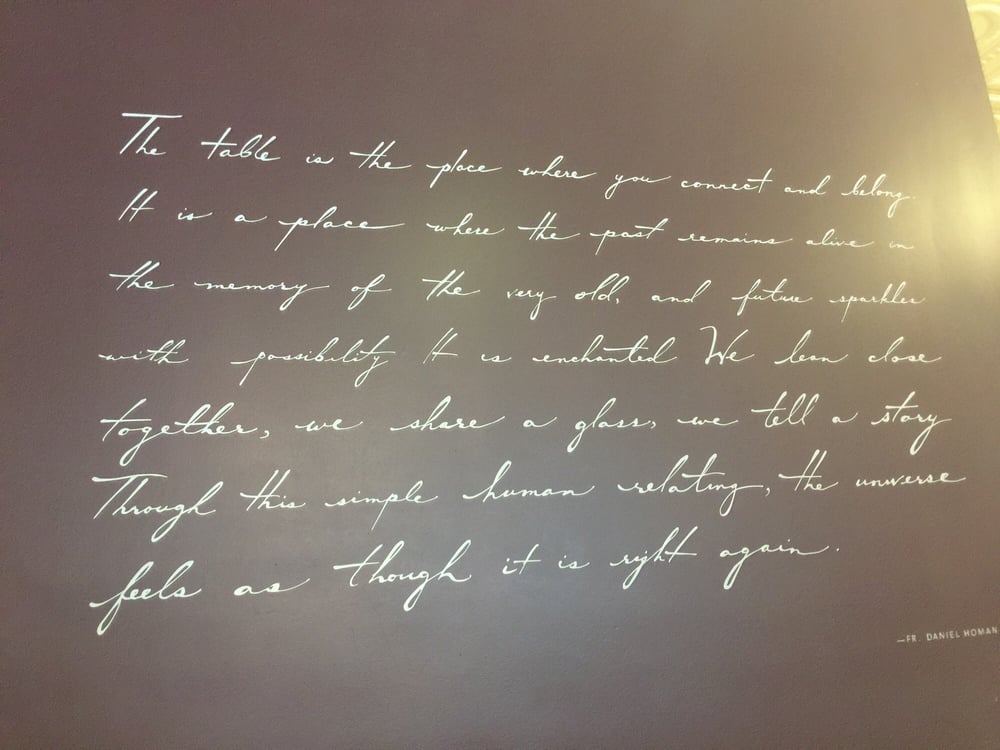 The table is the place where you connect and belong.
It is a place where the past remains alive in
the memory of the very old, and future sparkles
with possibility It is enchanted We lean close
together, we share a glass, we tell a story
Through this simple human relating, the universe
feels as though it is right again.
—FR. DANIEL HOMAN